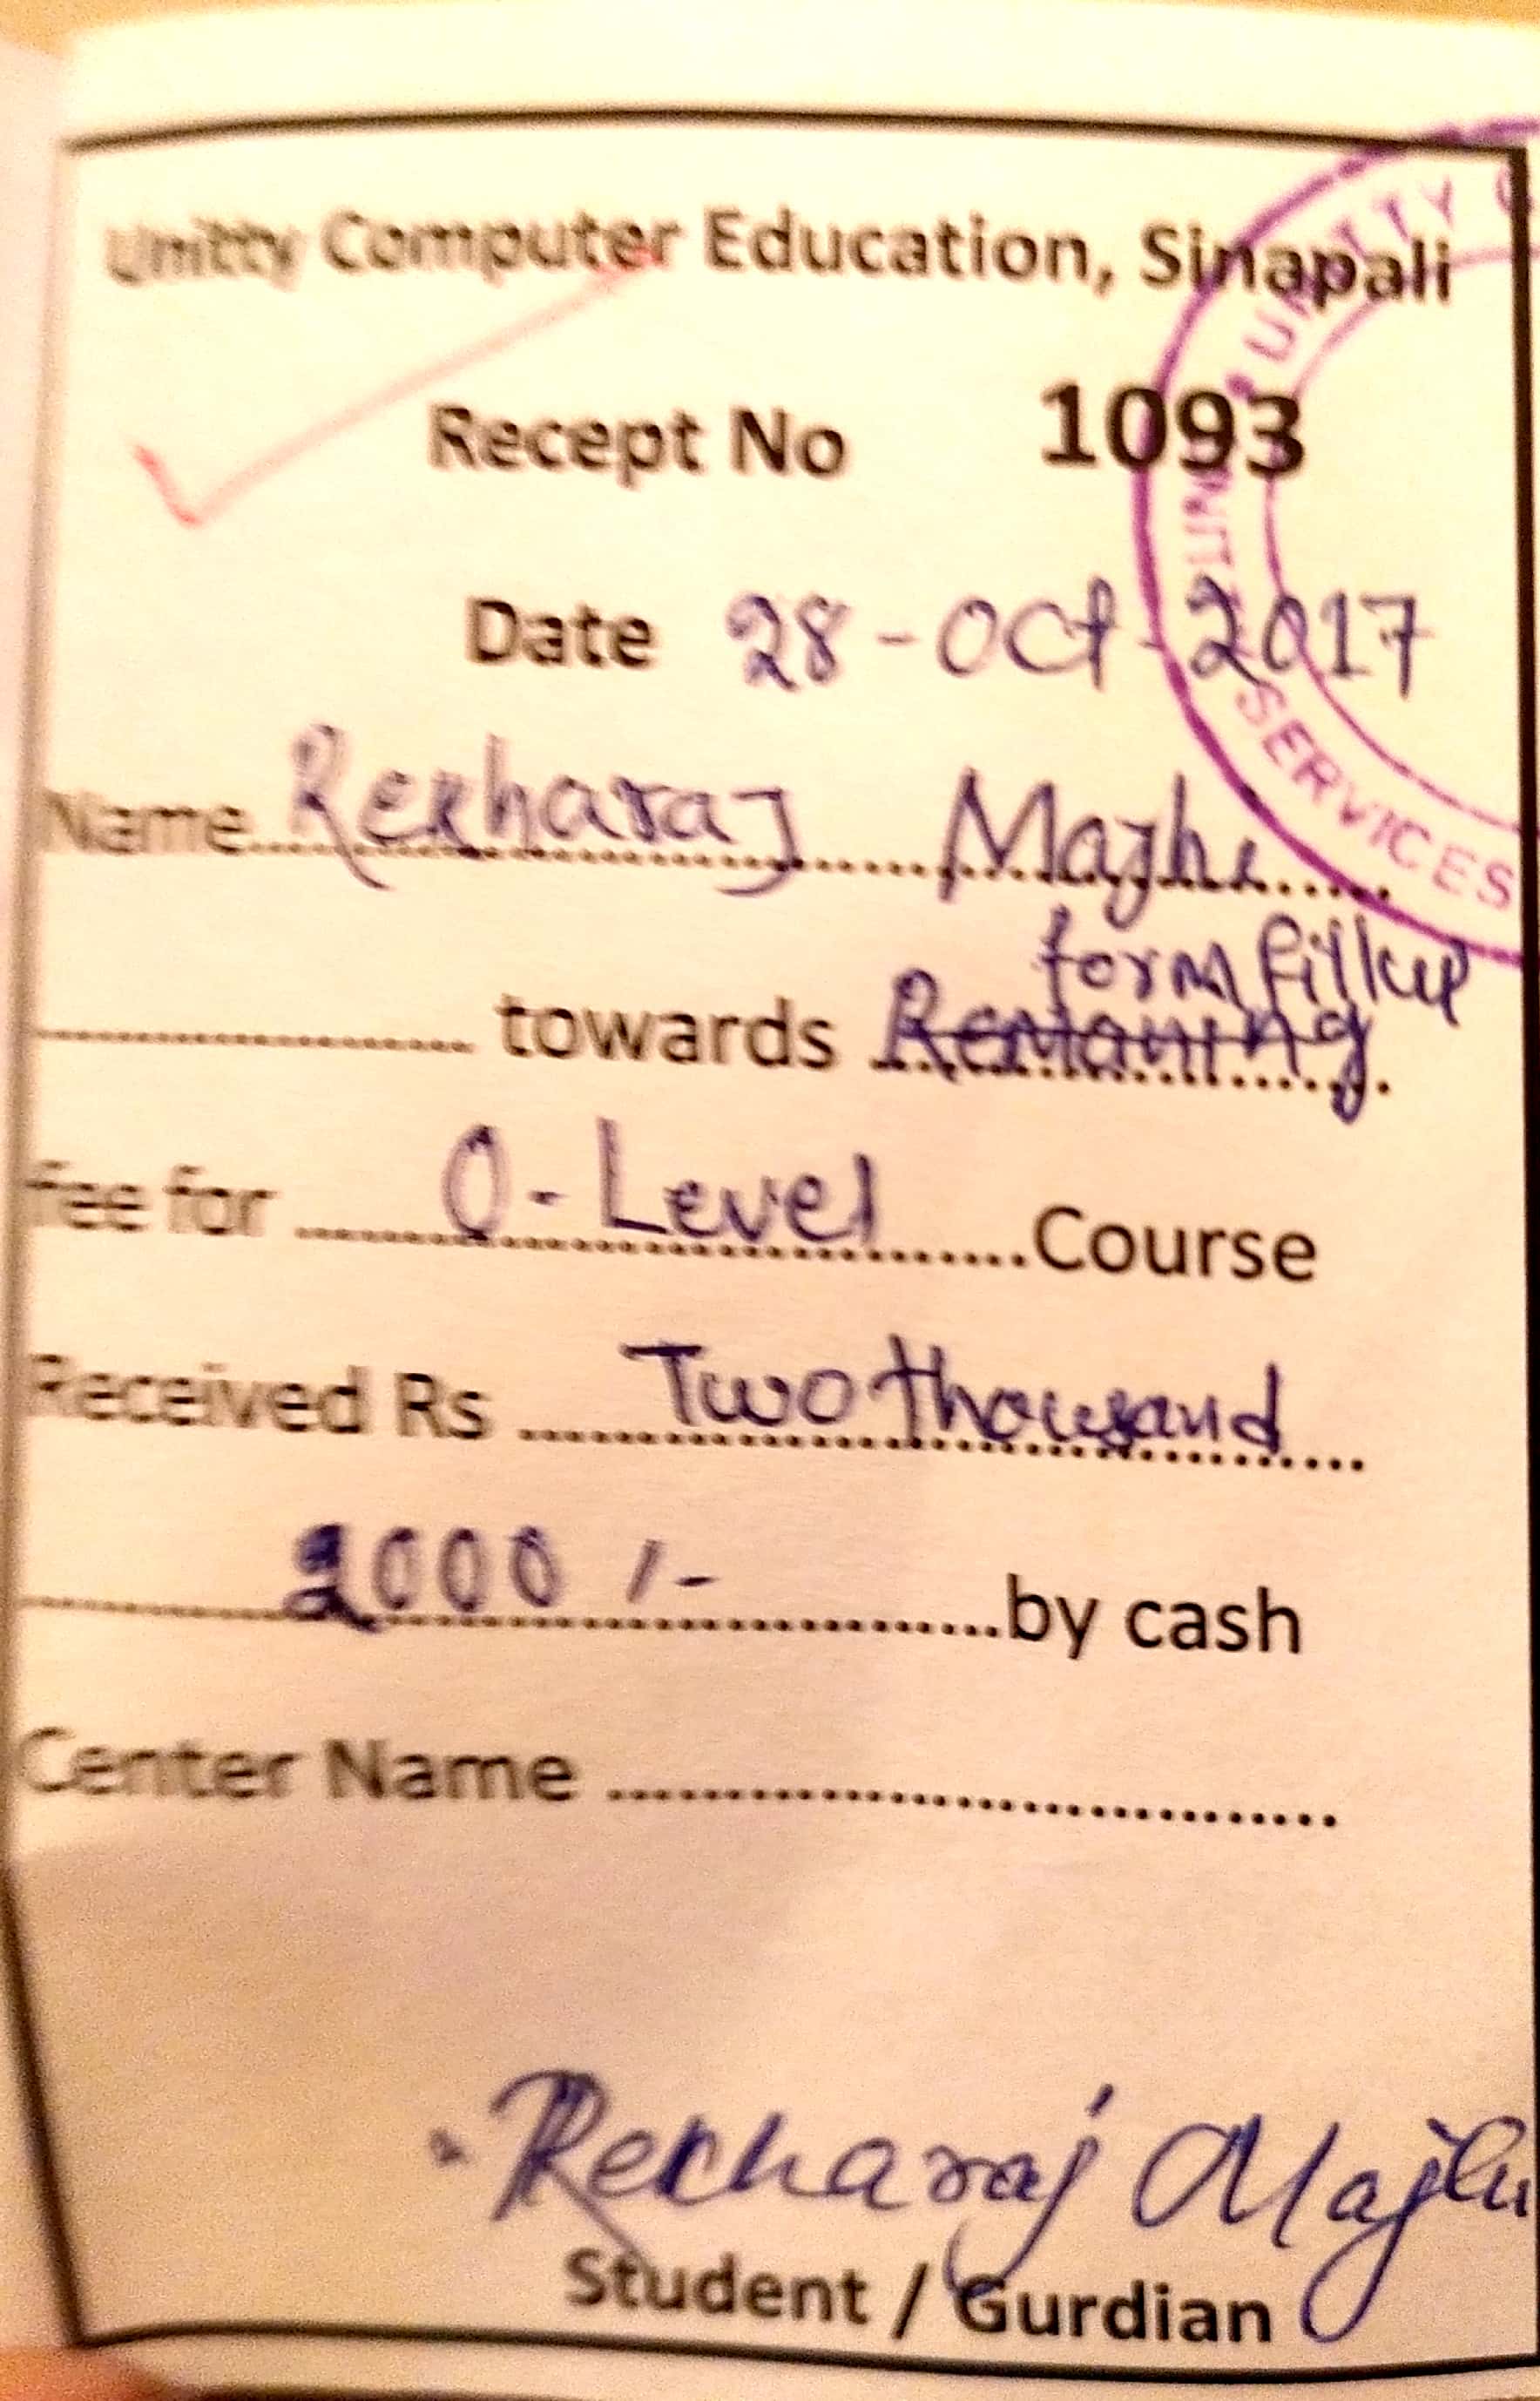 Unitty Computer Education, Sinapali
Recept No 1093
Date 28-Oct-2017
Name Rekharaj Majhi
form fillup
towards Remaining
fee for O-Level Course
Received Rs Two thousand
2000 /- by cash
Center Name
Rekharaj Majhi
Student / Gurdian
UNITTY
SERVICES